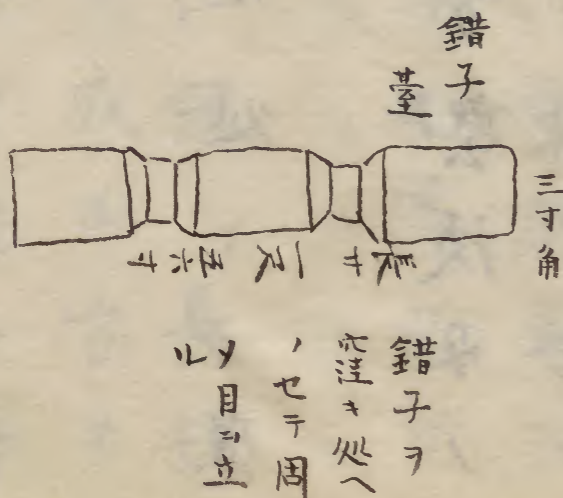 錯子
臺
三寸角
長サ一尺五六寸
錯子ヲ
窪キ処ヘ
ノセテ固
メ目ヲ立
ル